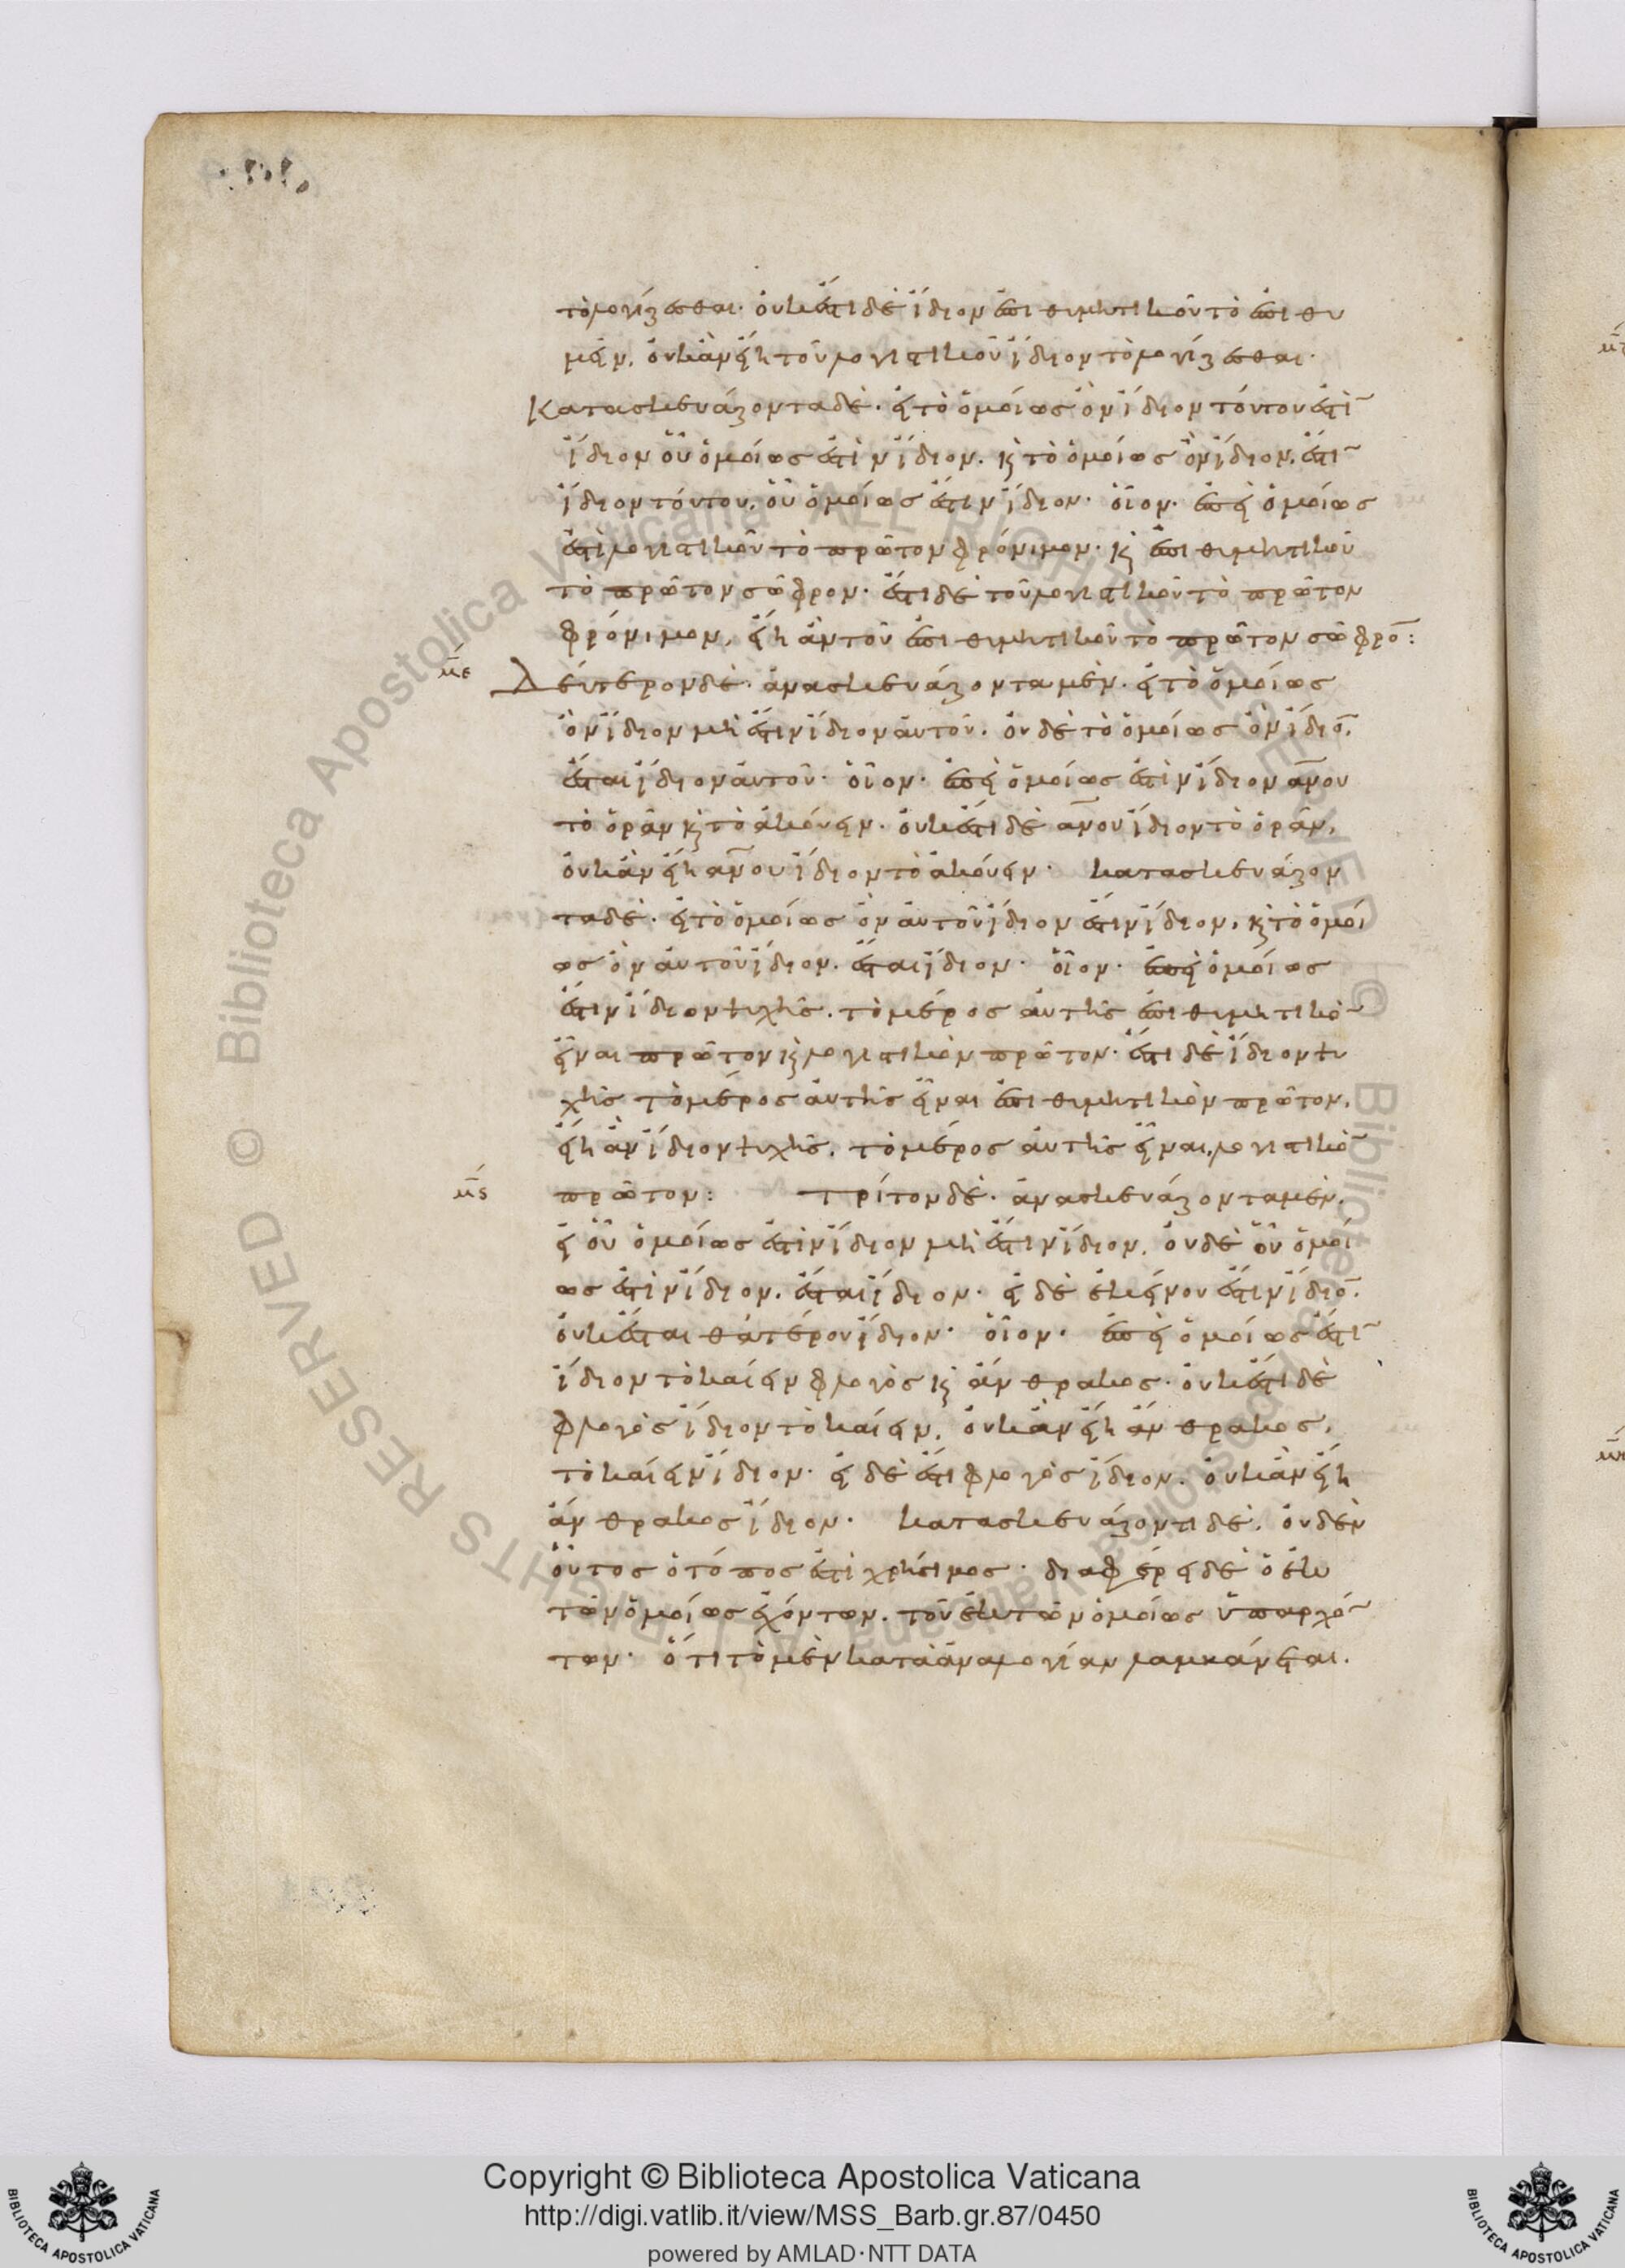 το λογίζεσθαι· οὐκ ἔστι δὲ ἴδιον ἐπιθυμητικοῦ τὸ ἐπιθυ
μεῖν, οὐκ ἂν εἴη τοῦ λογιστικοῦ ἴδιον τὸ λογίζεσθαι·
Κατασκευάζοντα δὲ· εἰ τὸ ὁμοίως ὂν ἴδιον τούτου ἐστὶ ̅
ἴδιον οὗ ὁμοίως ἐστὶν ἴδιον. κ τὸ ὁμοίως ὂν ἴδιον, ἔστι ̅
ἴδιον τούτου, οὗ ὁμοίως ἔστιν ἴδιον· οἷον· ἐπεὶ ὁμοίως
ἐστὶ λογιστικοῦ τὸ πρῶτον φρόνιμον· κ ἐπιθυμητικοῦ
τὸ πρῶτον σῶφρον· ἔστι δὲ τοῦ λογιστικοῦ τὸ πρῶτον
φρόνιμον, εἴη ἂν τοῦ ἐπιθυμητικοῦ τὸ πρῶτον σῶφρο̅:
με Δεύτερον δὲ· ἀνασκευάζοντα μὲν· εἰ τὸ ὁμοίως
ὂν ἴδιον μὴ ἔστιν ἴδιον αὐτοῦ. οὐδὲ τὸ ὁμοίως ὂν ἴδιο̅,
ἔσται ἴδιον αὐτοῦ· οἷον· ἐπεὶ ὁμοίως ἐστὶν ἴδιον α̅νου
τὸ ὁρᾶν κ τὸ ἀκούειν· οὐκ ἔστι δὲ α̅νου ἴδιον τὸ ὁρᾶν,
οὐκ ἂν εἴη α̅νου ἴδιον τὸ ἀκούειν· κατασκευάζον
τα δὲ· εἰ τὸ ὁμοίως ὂν αὐτοῦ ἴδιον ἔστιν ἴδιον, κ τὸ ὁμοί
ως ὂν αὐτοῦ ἴδιον. ἔσται ἴδιον· οἷον· ἐπεὶ ὁμοίως
ἔστιν ἴδιον ψυχῆς. τὸ μέρος αὐτῆς ἐπιθυμητικὸ ̅
εἶναι πρῶτον κ λογιστικὸν πρῶτον· ἔστι δὲ ἴδιον ψυ
χῆς τὸ μέρος αὐτῆς εἶναι ἐπιθυμητικὸν πρῶτον,
εἴη ἂν ἴδιον ψυχῆς. τὸ μέρος αὐτῆς εἶναι λογιστικὸ ̅
μς πρῶτον: Τρίτον δὲ· ἀνασκευάζοντα μὲν.
εἰ οὗ ὁμοίως ἐστὶν ἴδιον μὴ ἔστιν ἴδιον, οὐδὲ οὗ ὁμοί
ως ἐστὶν ἴδιον. ἔσται ἴδιον· εἰ δὲ ἐκείνου ἔστιν ἴδιο̅.
οὐκ ἔσται θατέρου ἴδιον· οἷον· ἐπεὶ ὁμοίως ἔστι ̅
ἴδιον τὸ καίειν φλογὸς κ ἄνθρακος· οὐκ ἔστι δὲ
φλογὸς ἴδιον τὸ καίειν, οὐκ ἂν εἴη ἄνθρακος,
τὸ καίειν ἴδιον· εἰ δὲ ἔστι φλογὸς ἴδιον. οὐκ ἂν εἴη
ἄνθρακος ἴδιον· κατασκευάζοντι δὲ, οὐδὲν
οὗτος ὁ τόπος ἐστὶ χρήσιμος· διαφέρει δὲ ὁ ἐκ
τῶν ὁμοίως ἐχόντων. τοῦ ἐκ τῶν ὁμοίως ὑπαρχό ̅
των· ὅτι τὸ μὲν κατὰ ἀναλογίαν λαμβάνεται.